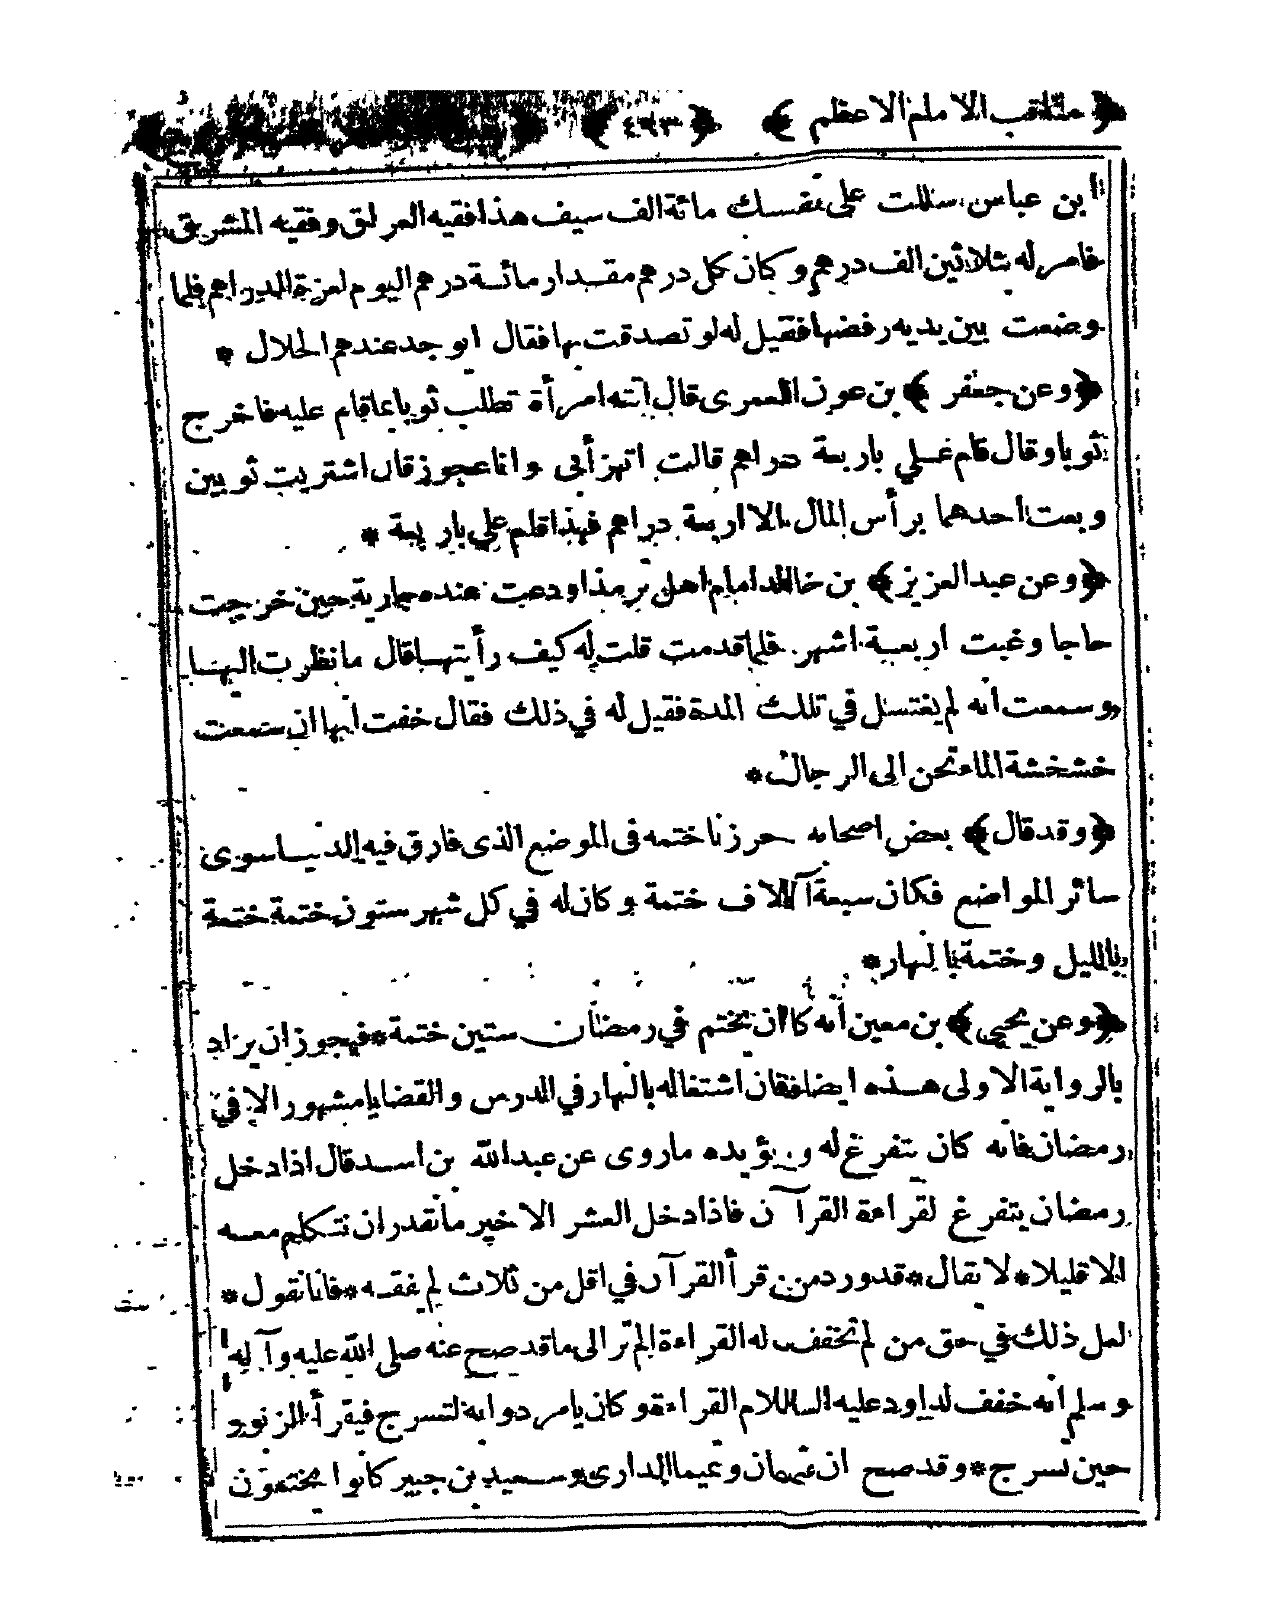 ﴿ مناقب الامام الاعظم ﴾ ﴿ ٤٩٣ ﴾
ابن عباس سللت على نفسك مائة الف سيف هذا فقيه العراق وفقيه المشرق
فامر له بثلاثين الف درهم وكان كل درهم مقدار مائة درهم اليوم لعزة الدراهم فلما
وضعت بين يديه رفضها فقيل له لو تصدقت بها فقال او جد عندهم الحلال *
﴿ وعن جعفر ﴾ بن عون العمرى قال اتته امرأة تطلب ثوبا عا قام عليه فاخرج
ثوبا وقال قام على باربعة دراهم قالت اتهزأبى وانا عجوز قال اشتريت ثوبين
وبعت احدهما برأس المال الا اربعة دراهم فهذا قام على باربعة *
﴿ وعن عبد العزيز ﴾ بن خالد امام اهل ترمذ اودعت عنده جارية حين خرجت
حاجا وغبت اربعة اشهر فلما قدمت قلت له كيف رأيتها قال ما نظرت اليها
وسمعت انه لم يغتسل في تلك المدة فقيل له في ذلك فقال خفت انها ان سمعت
خشخشة الماء تحن الى الرجال *
﴿ وقد قال ﴾ بعض اصحابه حرزنا ختمه فى الموضع الذى فارق فيه الدنيا سوى
سائر المواضع فكان سبعة آلاف ختمة وكان له في كل شهر ستون ختمة ختمة
بالليل وختمة بالنهار *
﴿ وعن يحيى ﴾ بن معين أنه كان يختم في رمضان ستين ختمة * فيجوز ان يراد
بالرواية الاولى هذه ايضا فان اشتغاله بالنهار في الدرس والقضايا مشهور الا في
رمضان فانه كان يتفرغ له ويؤيده ماروى عن عبد الله بن اسد قال اذا دخل
رمضان يتفرغ لقراءة القرآن فاذا دخل العشر الاخير ما نقدر ان نتكلم معه
الا قليلا * لا يقال * قد ورد من قرأ القرآن في اقل من ثلاث لم يفقه * فانا نقول *
لعل ذلك في حق من لم تخفف له القراءة الم تر الى ما قد صح عنه صلى الله عليه وآله
وسلم انه خفف لداود عليه السلام القراءة وكان يامر دوابه لتسرج فيقرأ الزبور
حين تسرج * وقد صح ان عثمان وتميما الدارى وسعيد بن جبير كانوا يختمون